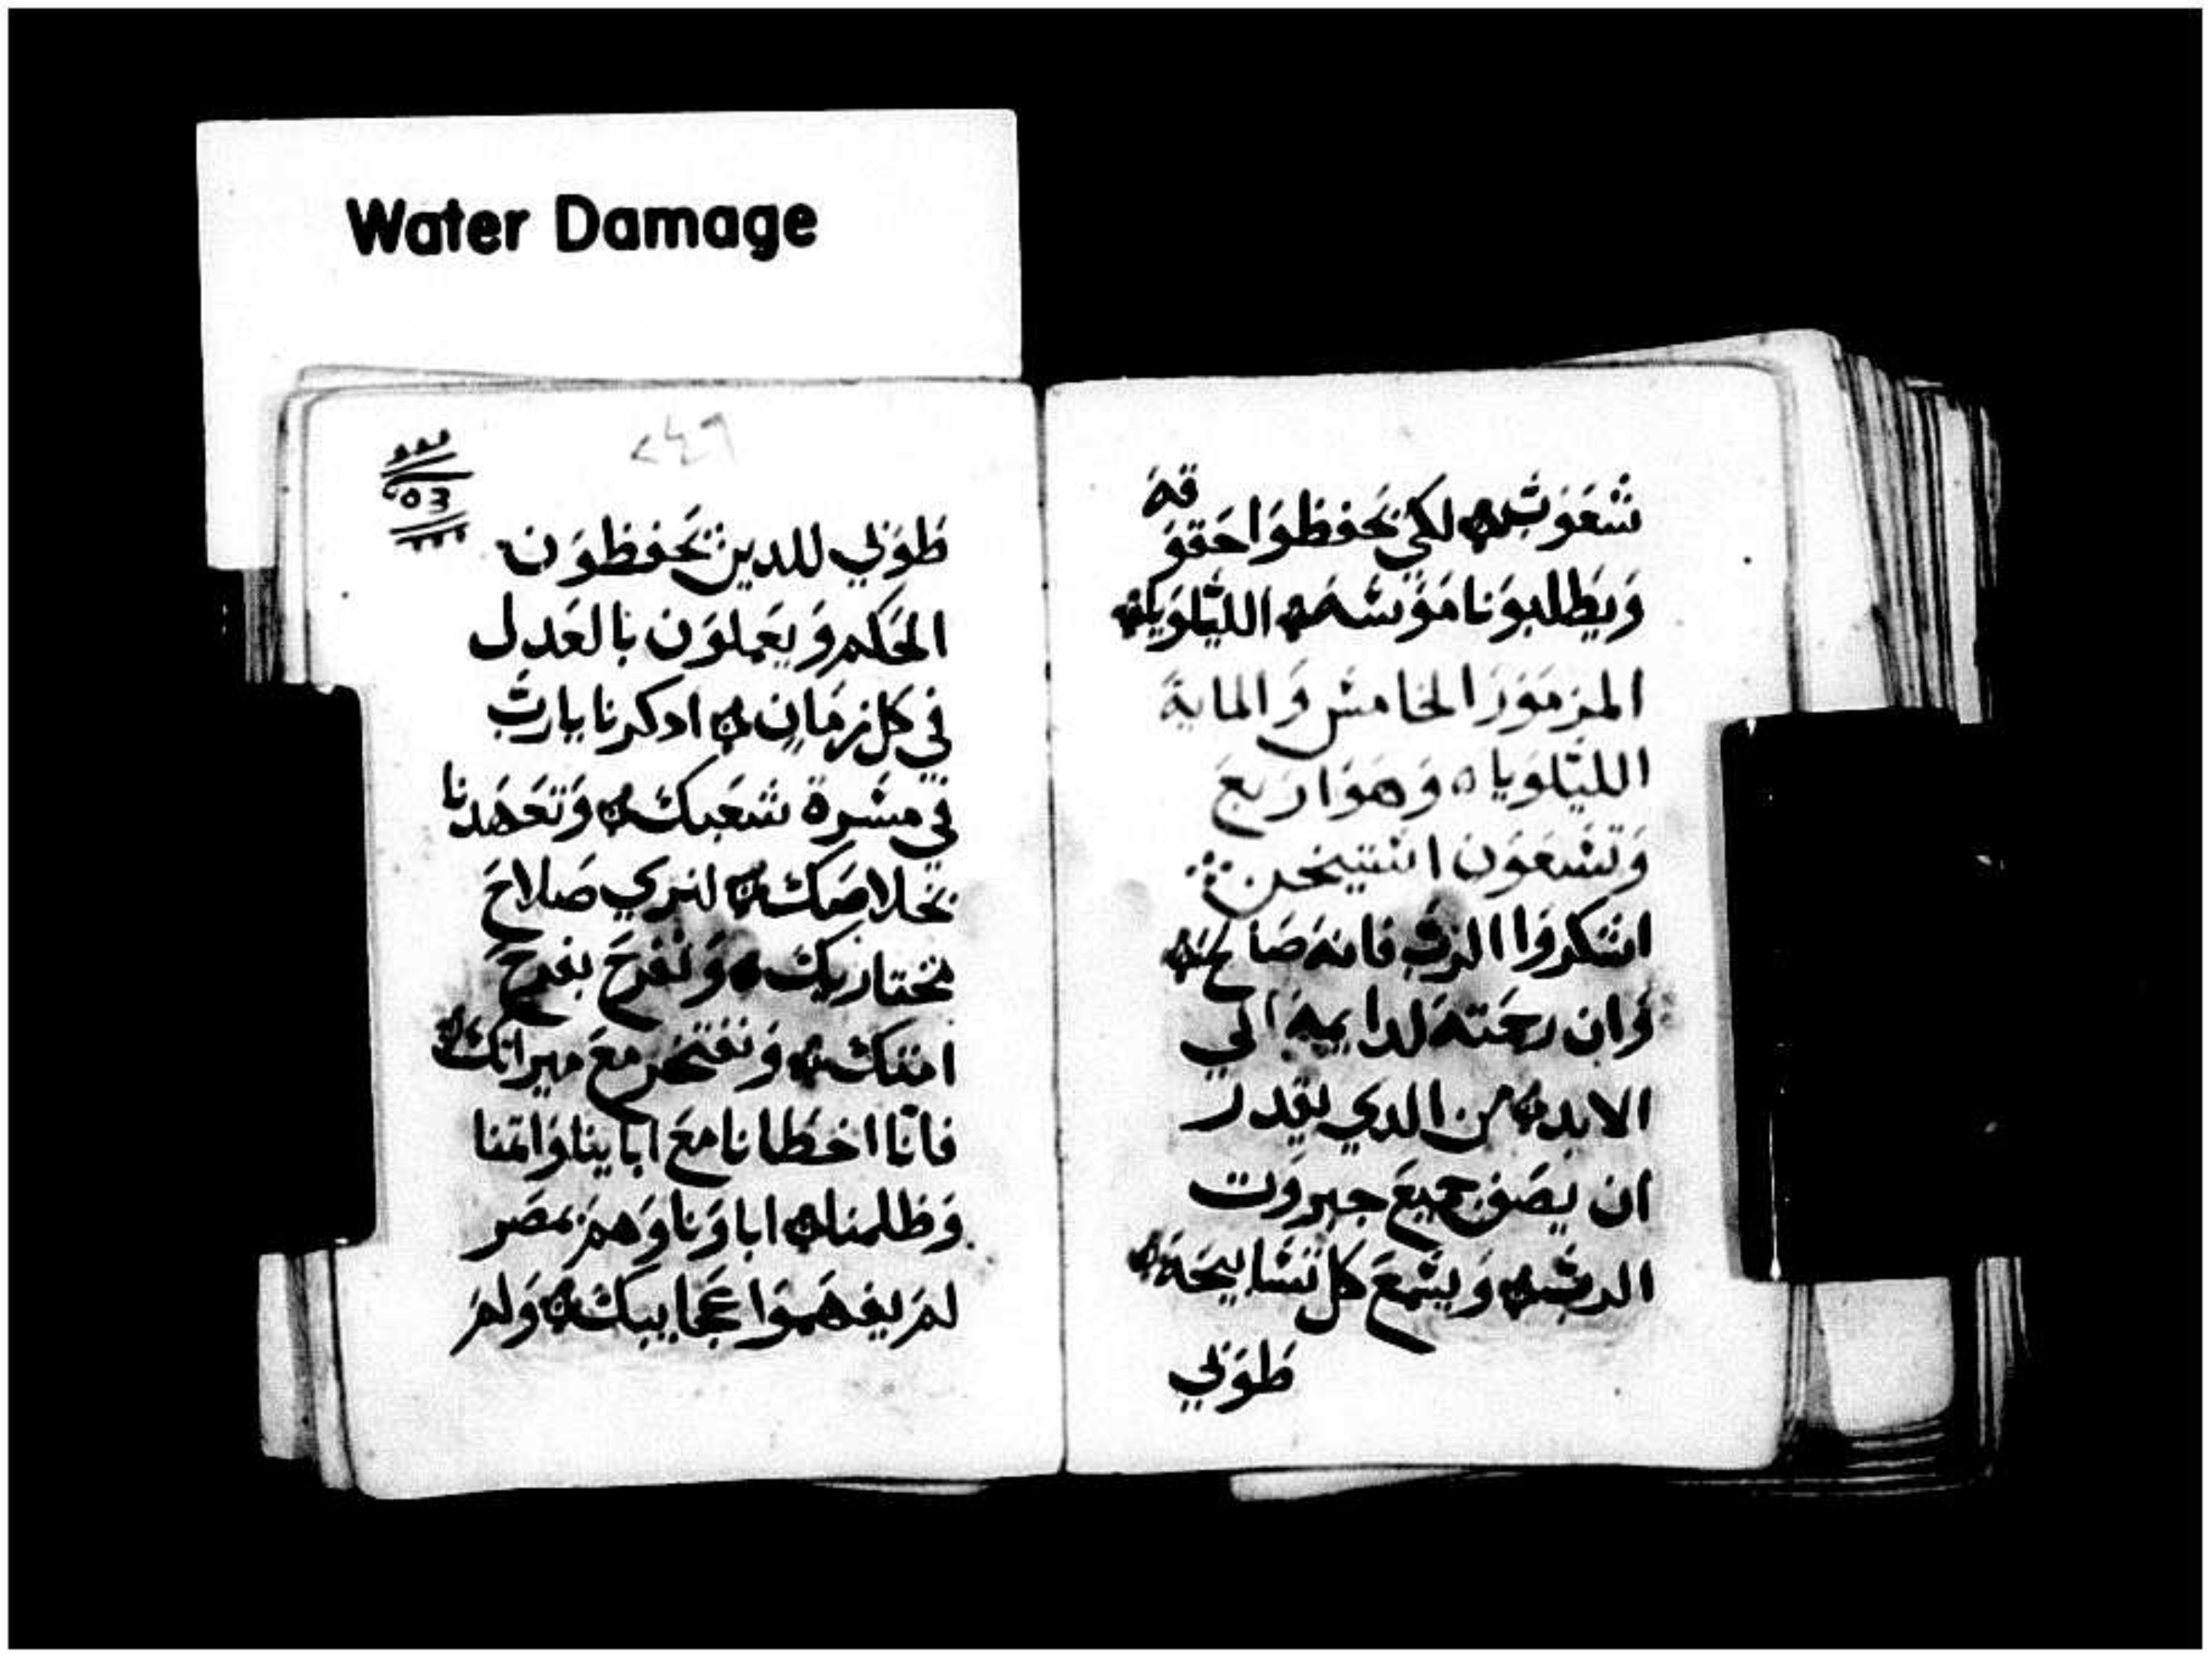 Water Damage
شعوب لكي يحفظوا حقوقه
ويطلبونا موسه الليلويا
المزمور الخامس والمايه
الليلويا ه وهو اربع
وتسعون استيخن
اشكروا الرب فانه صالح
وان رحمته لدايمه الي
الابد من الدي يقدر
ان يصف جميع جبروت
الرب ويسمع كل تسابيحه
طوبي
٢٤٩
طوبي للدين يحفظون
الحكم ويعملون بالعدل
في كل زمان ادكرنا يارب
في مسرة شعبك وتعهدنا
بخلاصك لنري صلاح
مختاريك ونفرح بفرح
امتك ونفتخر مع ميراتك
فاننا اخطانا مع اباينا واتمنا
وظلمنا اباونا وهم بمصر
لم يفهموا عجايبك ولم